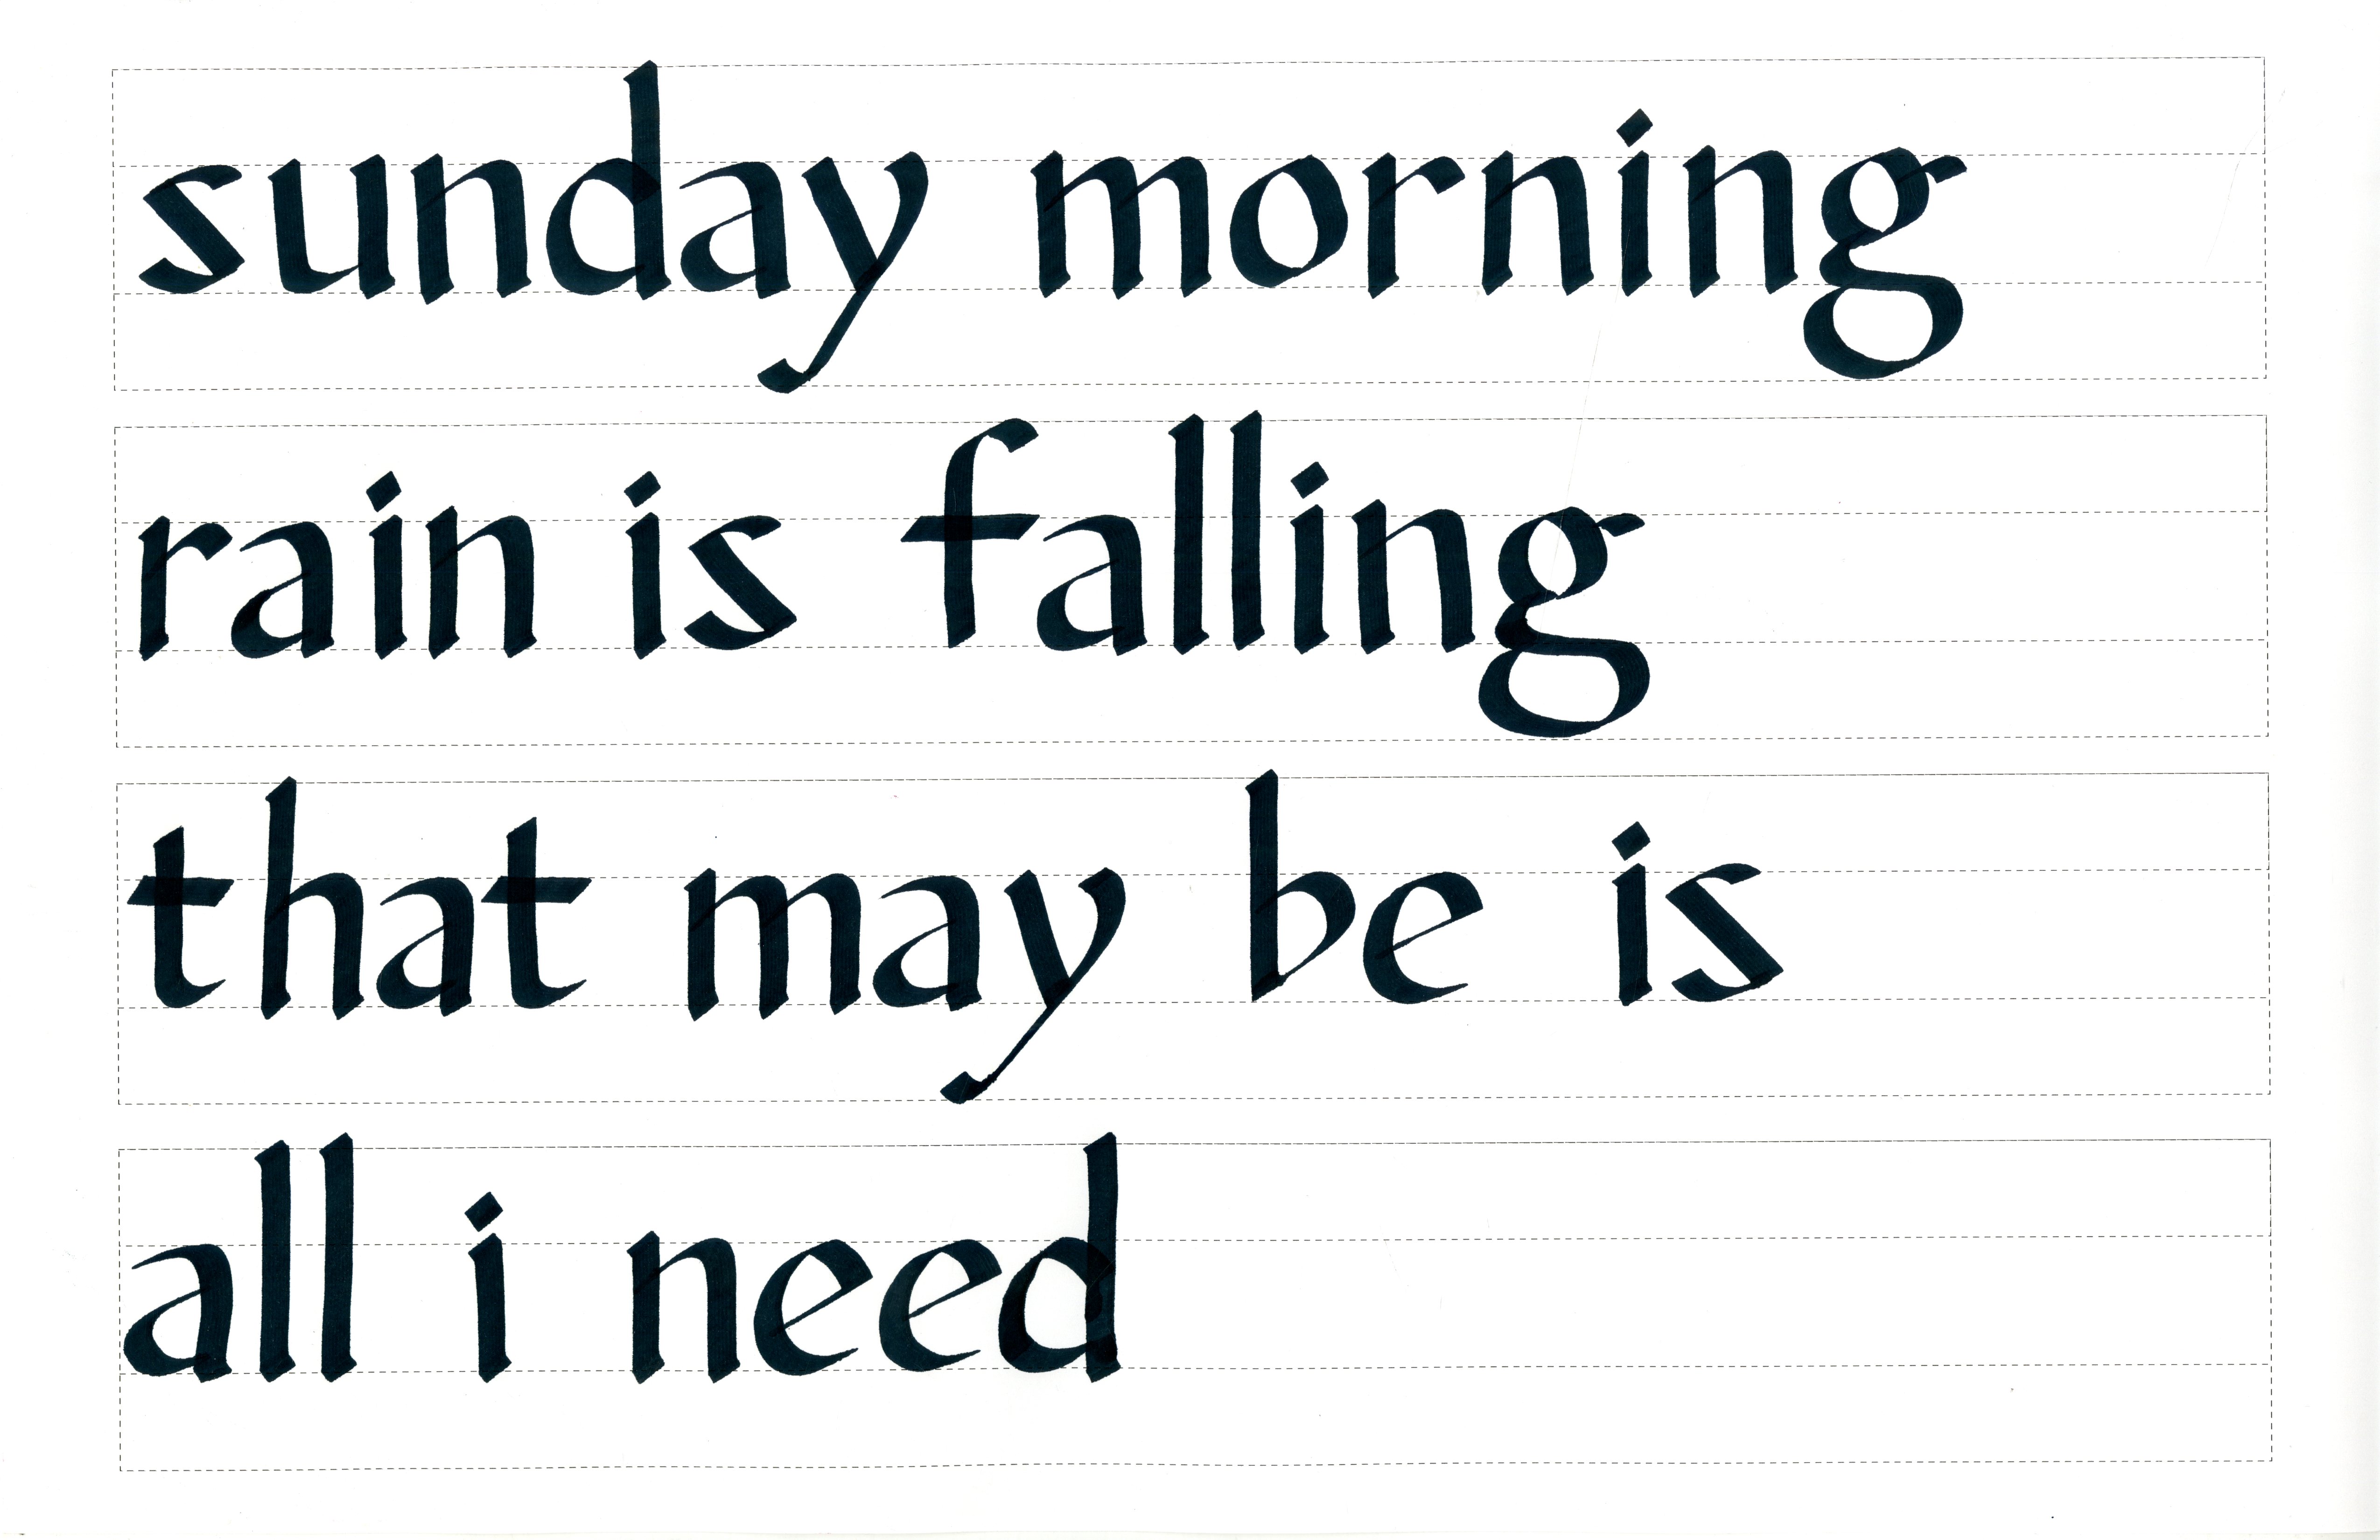 sunday morning
rain is falling
that may be is
all i need